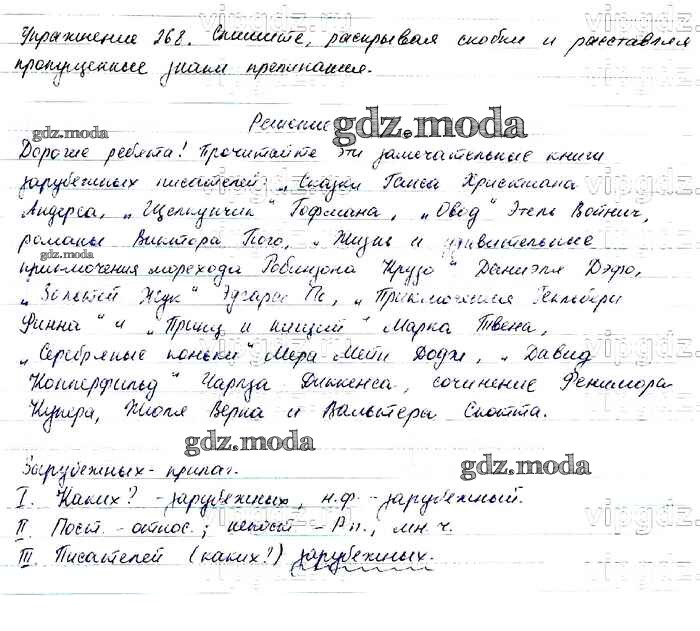 Упражнение 268. Спишите, раскрывая скобки и расставляя
пропущенные знаки препинания.
Решение
gdz.moda
gdz.moda
Дорогие ребята! Прочитайте эти замечательные книги
зарубежных писателей: „Сказки Ганса Христиана
Андерса, „Щелкунчик" Гофмана, „Овод" Этель Войнич,
романы Виктора Гюго, „Жизнь и удивительные
gdz.moda
приключения морехода Робинзона Крузо" Даниэля Дэфо,
„Золотой Жук" Эдгара По, „Приключения Гекльбери
Финна" и „Принц и нищий" Марка Твена,
„Серебряные коньки" Мери Мейп Додж, „Давид
Копперфильд" Чарлза Диккенса, сочинение Фенимора
Купера, Жюля Верна и Вальтера Скотта.
gdz.moda
Зарубежных - прилаг.
gdz.moda
I. Каких? - зарубежных, н.ф. - зарубежный.
II. Пост. - относ.; непост - Р.п., мн. ч.
III. Писателей (каких?) зарубежных.
vipgdz.ru